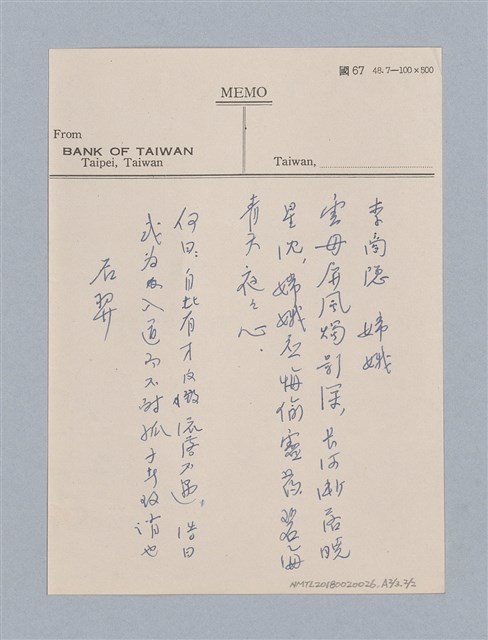 國67 48.7—100×500
MEMO
From
BANK OF TAIWAN
Taipei, Taiwan
Taiwan,
李商隱 嫦娥
雲母屏風燭影深，長河漸落曉
星沈，嫦娥應悔偷靈藥 碧海
青天夜々心．
何曰：自比有才反致流落不遇，
或為入道而不耐孤
后羿
NMTL20180020026.A3/3.2/2